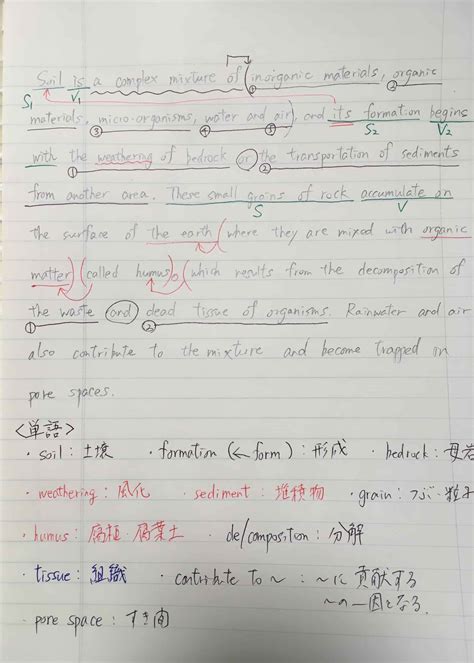 Soil is a complex mixture of (inorganic materials, organic
① ②
S₁ V₁
materials, micro-organisms, water and air), and its formation begins
③ ④ ⑤ S₂ V₂
with the weathering of bedrock or the transportation of sediments
① ②
from another area. These small grains of rock accumulate on
S V
the surface of the earth (where they are mixed with organic
matter) (called humus), (which results from the decomposition of
the waste and dead tissue of organisms. Rainwater and air
① ②
also contribute to the mixture and become trapped in
pore spaces.
<単語>
・soil : 土壌 ・formation (← form) : 形成 ・bedrock : 母岩
・weathering : 風化 ・sediment : 堆積物 ・grain : つぶ・粒子
・humus : 腐植・腐葉土 de/composition : 分解
・tissue : 組織 ・contribute to ~ : ~に貢献する
~の一因となる.
・pore space : すき間